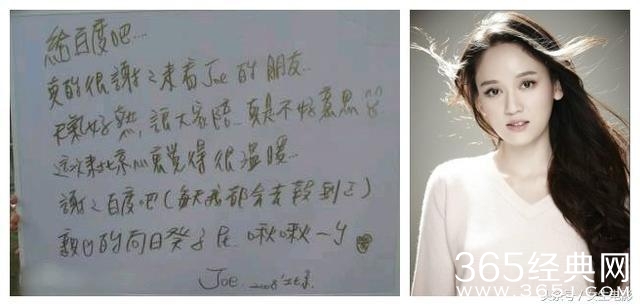 給百度吧...
真的很謝之來看Joe的朋友..
天氣好熱,讓大家陪..真是不好意思
這次來北京心裏覺得很溫暖...
謝之百度吧(每天我都會去報到的)
親
的向日葵子民 啾啾一
Joe. 2008
365经典网
www.365j.com
头条号